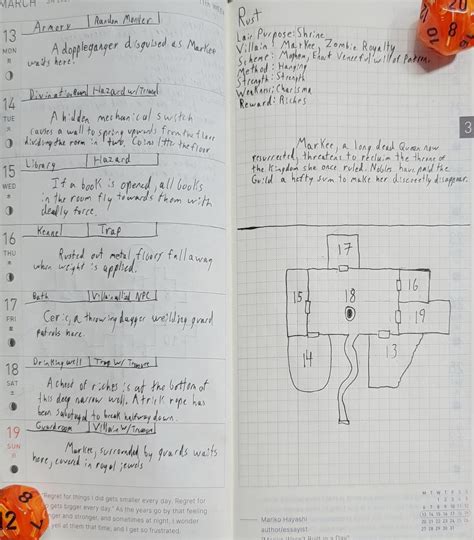 MARCH
11th WEEK
13
MON
Armory | Random Monster
A doppleganger disguised as MarKee
waits here.
14
TUE
Divination Room | Hazard w/Treasure
A hidden mechanical switch
causes a wall to spring upwards from the floor
dividing the room in two. Coins litter the floor
15
WED
Library | Hazard
If a book is opened, all books
in the room fly towards them with
deadly force.
16
THU
Kennel | Trap
Rusted out metal floors fall away
when weight is applied.
17
FRI
Bath | Villain allied NPC
Ceric, a throwing dagger weilding guard
patrols here.
18
SAT
Drinking well | Trap w/ Treasure
A chest of riches is at the bottom of
this deep narrow well. A trick rope has
been sabotaged to break halfway down.
19
SUN
Guardroom | Villain w/Treasure
MarKee, surrounded by guards waits
here, covered in royal jewels
"Regret for things I did gets smaller every day. Regret for
gets bigger every day." As the years go by that feeling
nger and stronger, and sometimes at night, I wonder
yel at them that time, and I get so frustrated.
8
12
Rust
Lair Purpose: Shrine
Villain: MarKee, Zombie Royalty
Scheme: Mayhem, Enact Vengeful will of Patron.
Method: Hanging
Strength: Strength
Weakness: Charisma
Reward: Riches
20
8
3
MarKee, a long dead Queen now
resurrected, threatens to reclaim the throne of
the Kingdom she once ruled. Nobles have paid the
Guild a hefty sum to make her discreetly disappear.
17
15
18
16
19
14
13
M T W T F S S
Mariko Hayashi
author/essayist